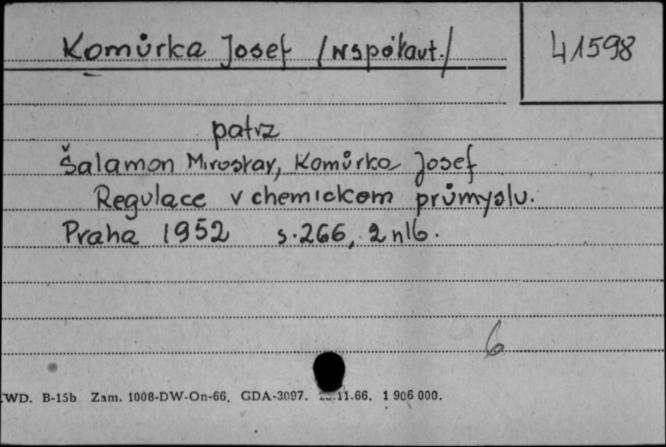 Komůrka Josef /współaut./
41598
patrz
Šalamon Mirosłav, Komůrka Josef
Regulace v chemickem průmyslu.
Praha 1952 s.266, 2 nlb.
6
WD. B-15b Zam. 1008-DW-On-66. GDA-3097. .11.66. 1 906 000.